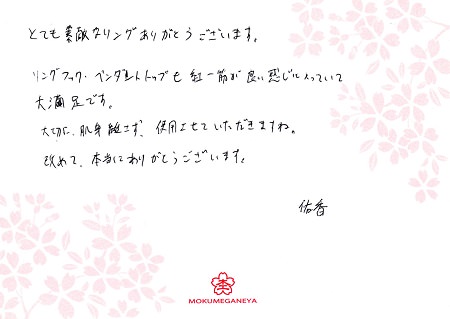 とても素敵なリングありがとうございます。
リングフック・ペンダントトップも紅一筋が良い感じに入っていて
大満足です。
大切に、肌身離さず、使用させていただきますね。
改めて、本当にありがとうございます。
佑香
MOKUMEGANEYA